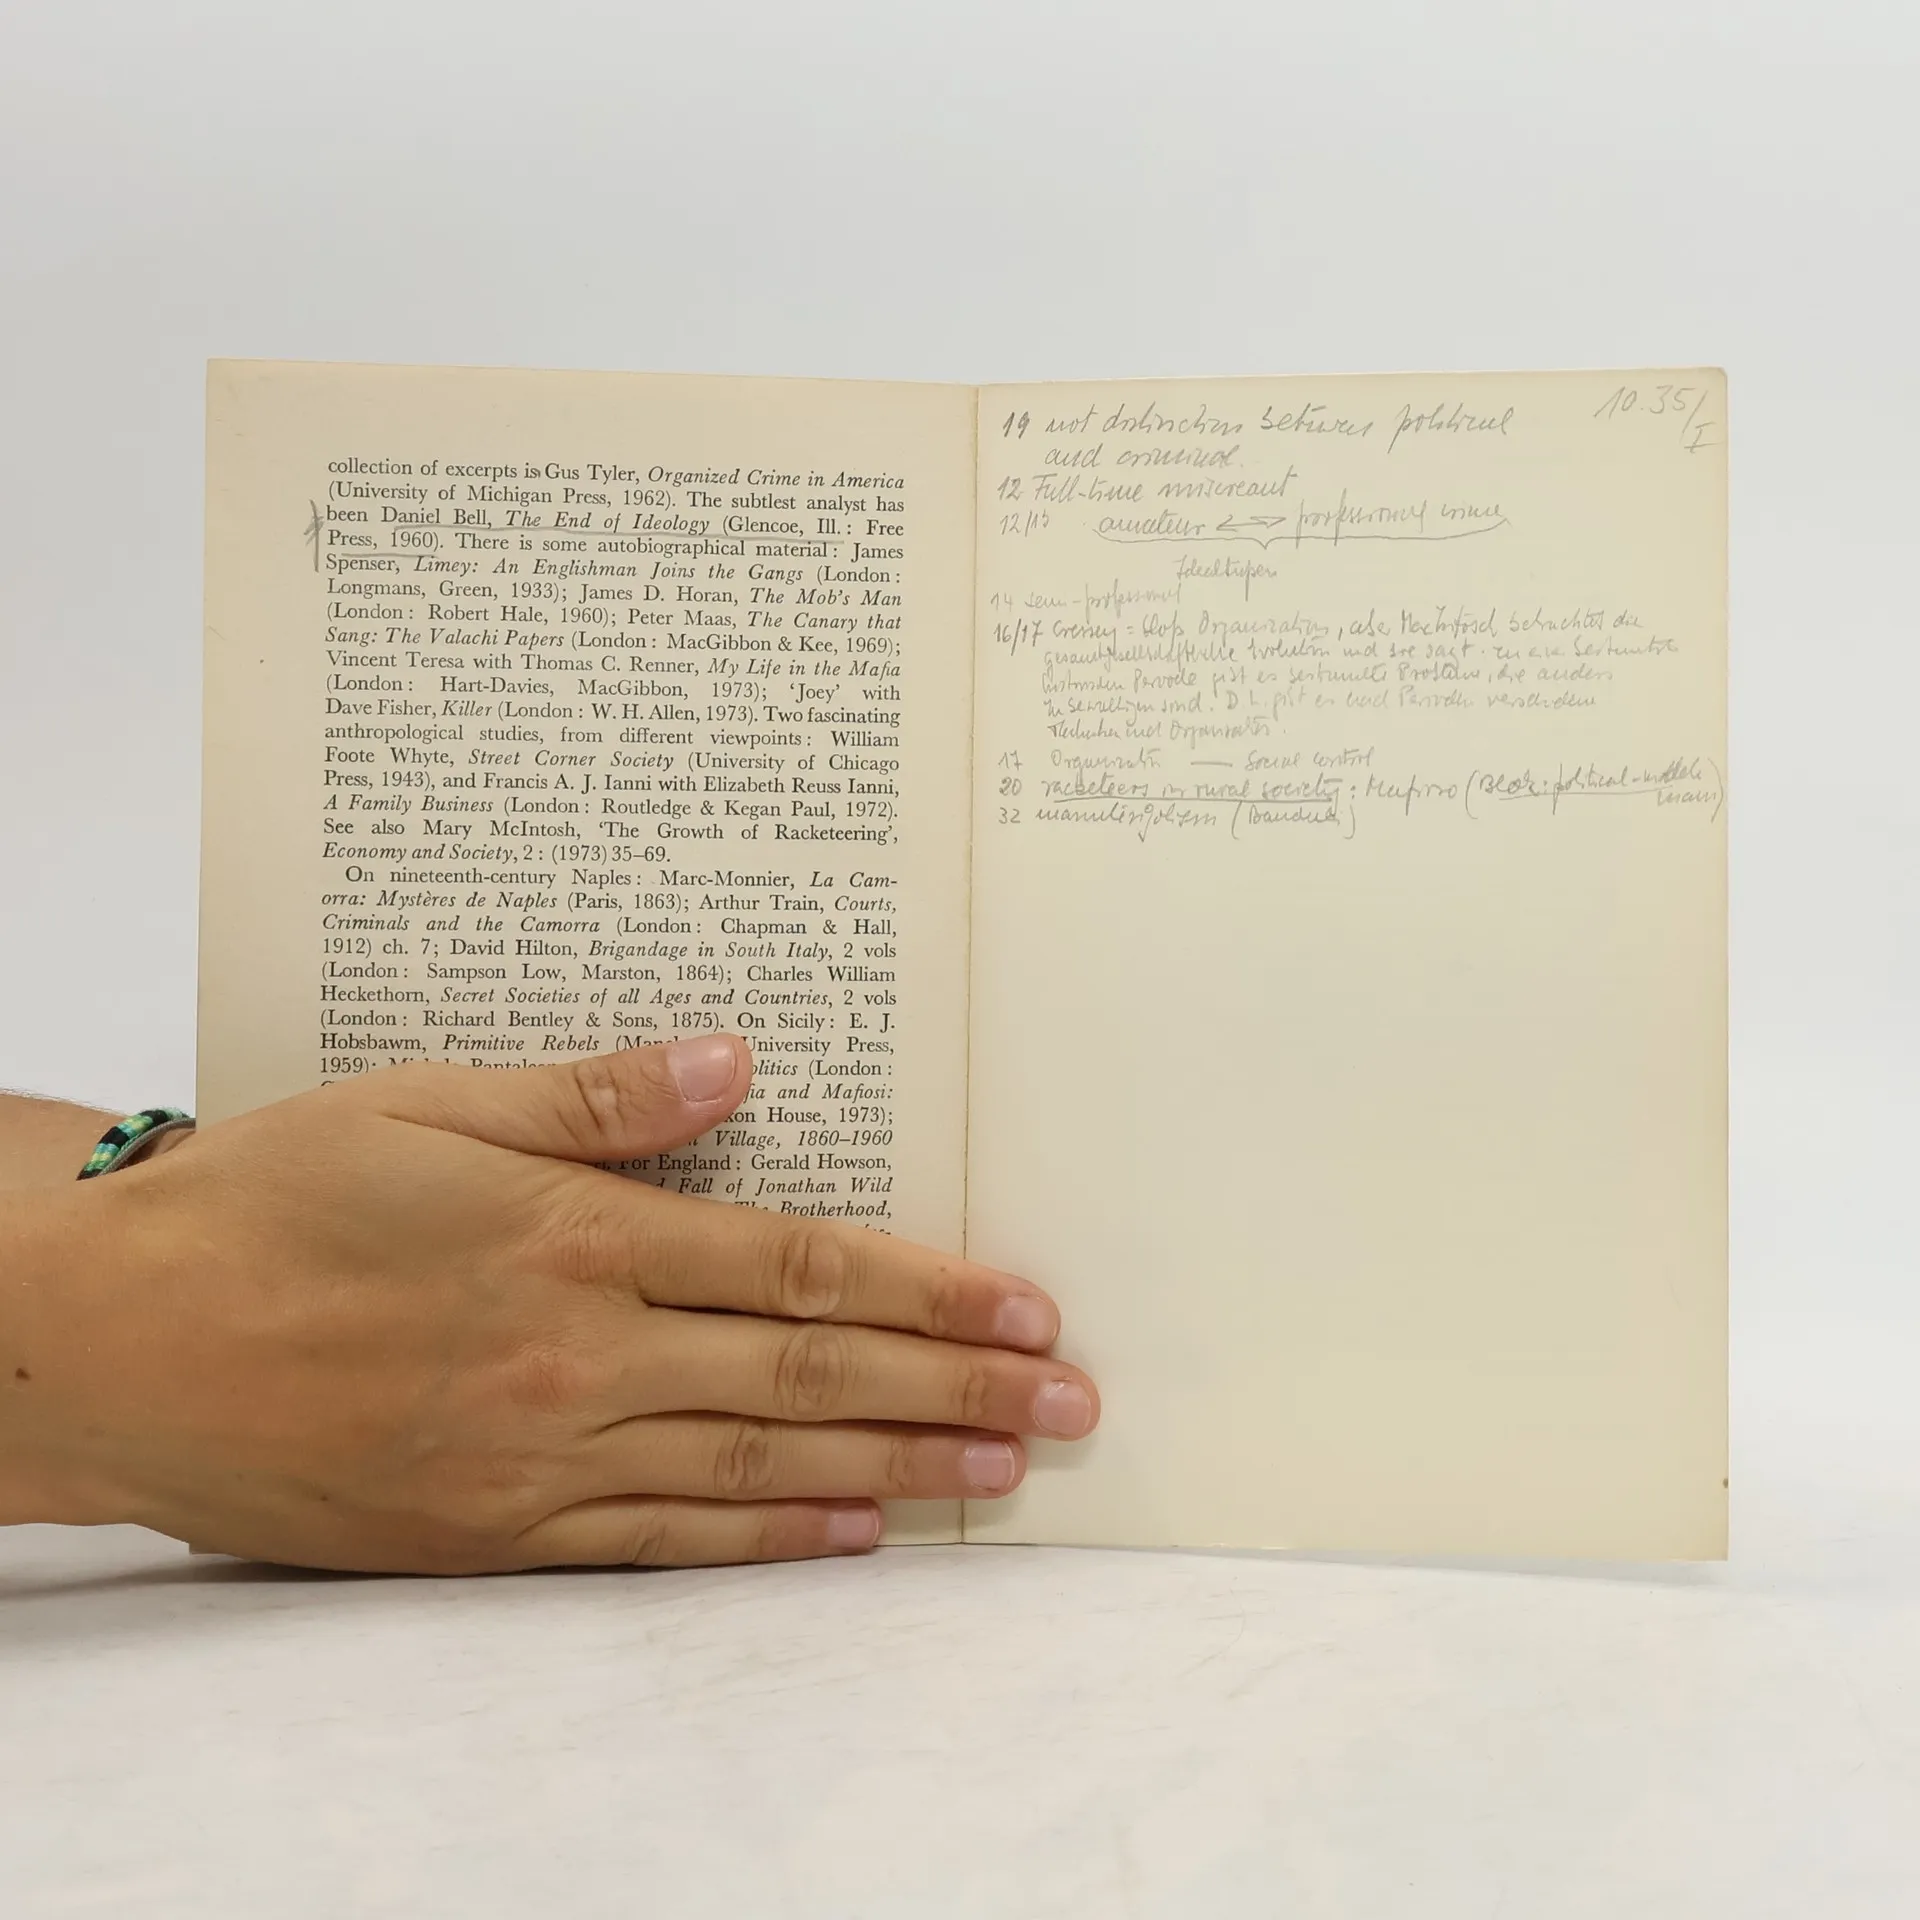 collection of excerpts is Gus Tyler, Organized Crime in America
(University of Michigan Press, 1962). The subtlest analyst has
been Daniel Bell, The End of Ideology (Glencoe, Ill.: Free
Press, 1960). There is some autobiographical material: James
Spenser, Limey: An Englishman Joins the Gangs (London:
Longmans, Green, 1933); James D. Horan, The Mob's Man
(London: Robert Hale, 1960); Peter Maas, The Canary that
Sang: The Valachi Papers (London: MacGibbon & Kee, 1969);
Vincent Teresa with Thomas C. Renner, My Life in the Mafia
(London: Hart-Davies, MacGibbon, 1973); 'Joey' with
Dave Fisher, Killer (London: W. H. Allen, 1973). Two fascinating
anthropological studies, from different viewpoints: William
Foote Whyte, Street Corner Society (University of Chicago
Press, 1943), and Francis A. J. Ianni with Elizabeth Reuss Ianni,
A Family Business (London: Routledge & Kegan Paul, 1972).
See also Mary McIntosh, 'The Growth of Racketeering',
Economy and Society, 2: (1973) 35–69.
On nineteenth-century Naples: Marc-Monnier, La Cam-
orra: Mystères de Naples (Paris, 1863); Arthur Train, Courts,
Criminals and the Camorra (London: Chapman & Hall,
1912) ch. 7; David Hilton, Brigandage in South Italy, 2 vols
(London: Sampson Low, Marston, 1864); Charles William
Heckethorn, Secret Societies of all Ages and Countries, 2 vols
(London: Richard Bentley & Sons, 1875). On Sicily: E. J.
Hobsbawm, Primitive Rebels University Press,
1959); (London:
and Mafiosi:
House, 1973);
Village, 1860–1960
For England: Gerald Howson,
Fall of Jonathan Wild
Brotherhood,
10.35/I
19 not distinction between political
and criminal.
12 Full-time miscreant
12/13 amateur <=> professional crime
Idealtypen
14 semi-professional
16/17 Cressey = bloß Organization, aber betrachtet die
gesamtgesellschaftliche Evolution und sie sagt. zu eine bestimmte
Periode gibt es bestimmte Probleme, die anders
zu bewältigen sind. D.h. gibt es nach Perioden verschiedene
Techniken und
17 — Social control
20 racketeers in rural society: Mafioso (Blok: political-middle
man)
32